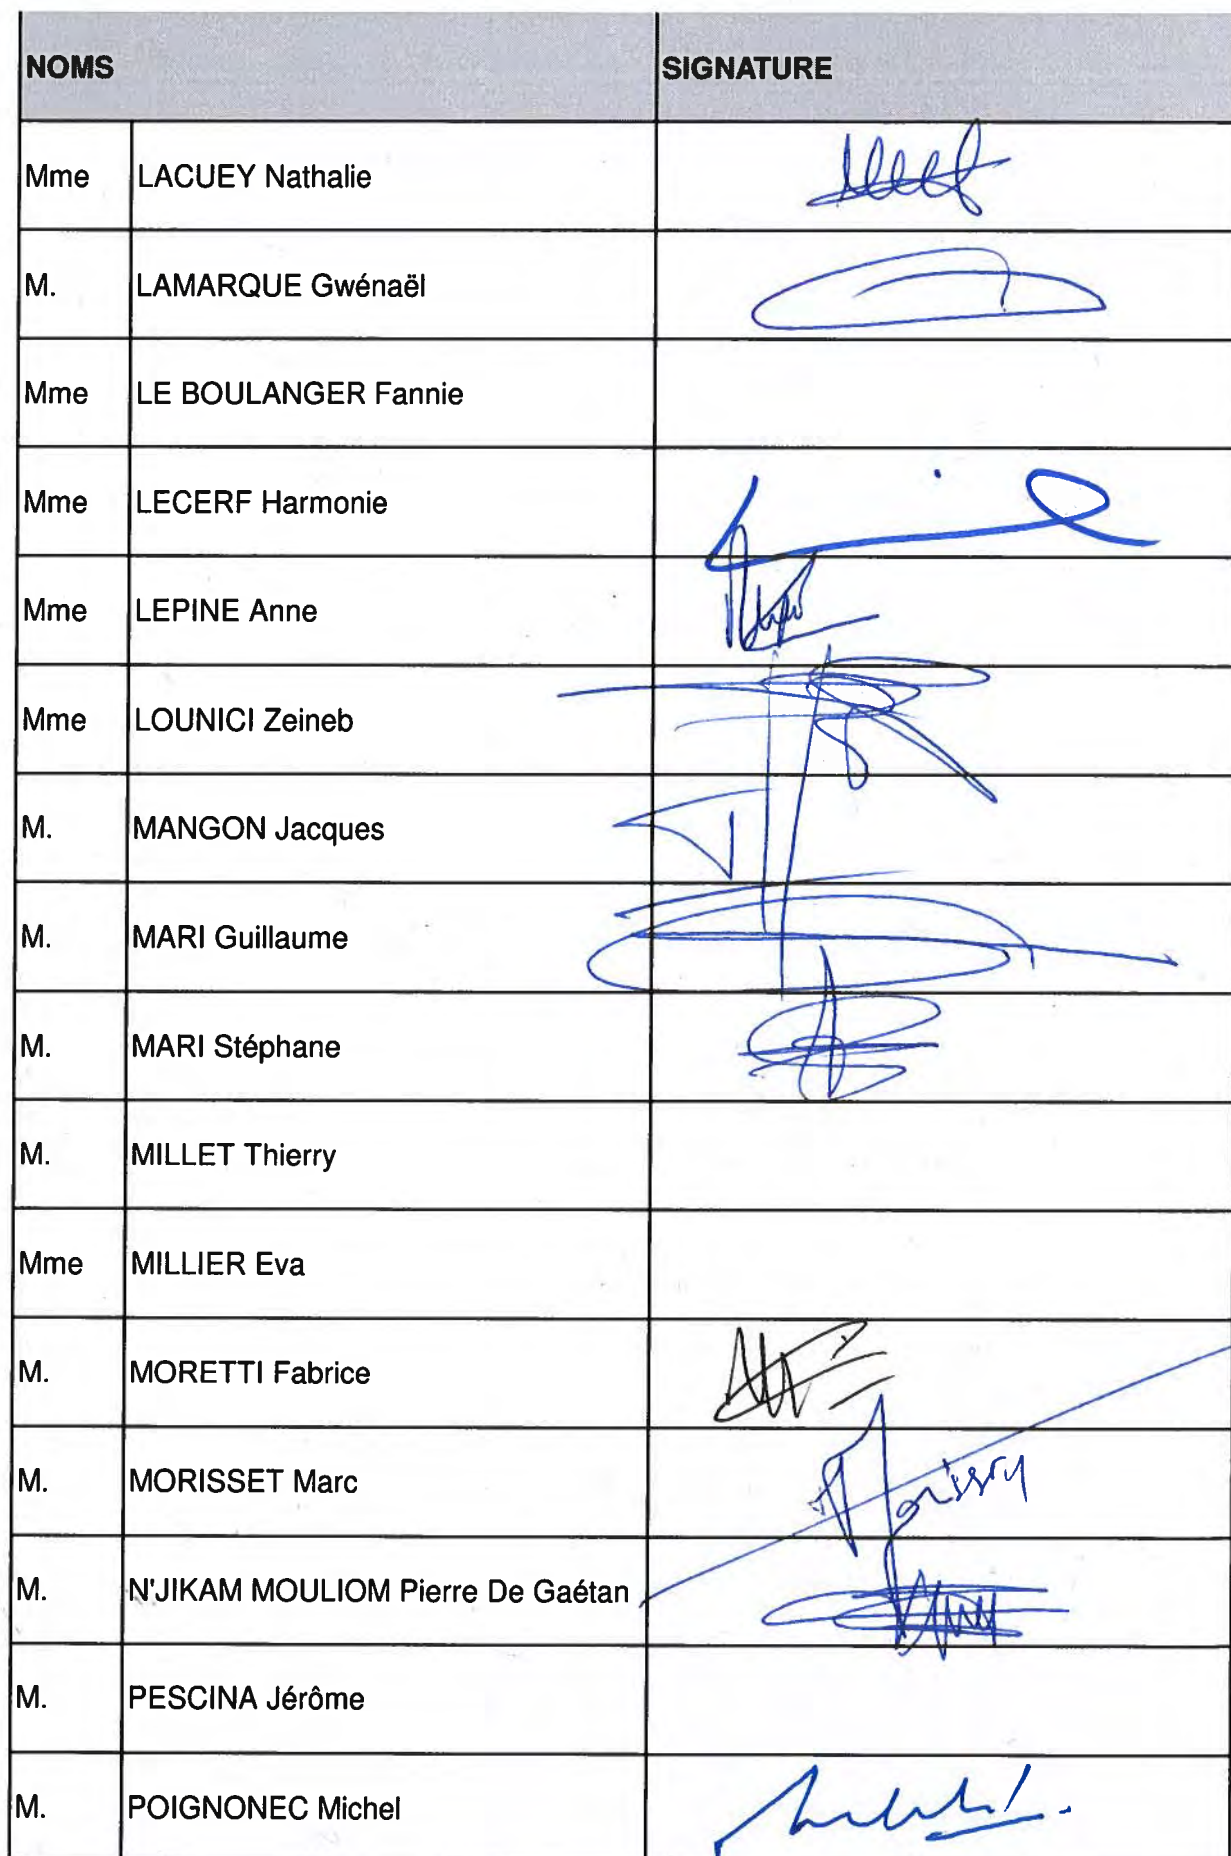 NOMS SIGNATURE
Mme LACUEY Nathalie
M. LAMARQUE Gwénaël
Mme LE BOULANGER Fannie
Mme LECERF Harmonie
Mme LEPINE Anne
Mme LOUNICI Zeineb
M. MANGON Jacques
M. MARI Guillaume
M. MARI Stéphane
M. MILLET Thierry
Mme MILLIER Eva
M. MORETTI Fabrice
M. MORISSET Marc
M. N'JIKAM MOULIOM Pierre De Gaétan
M. PESCINA Jérôme
M. POIGNONEC Michel